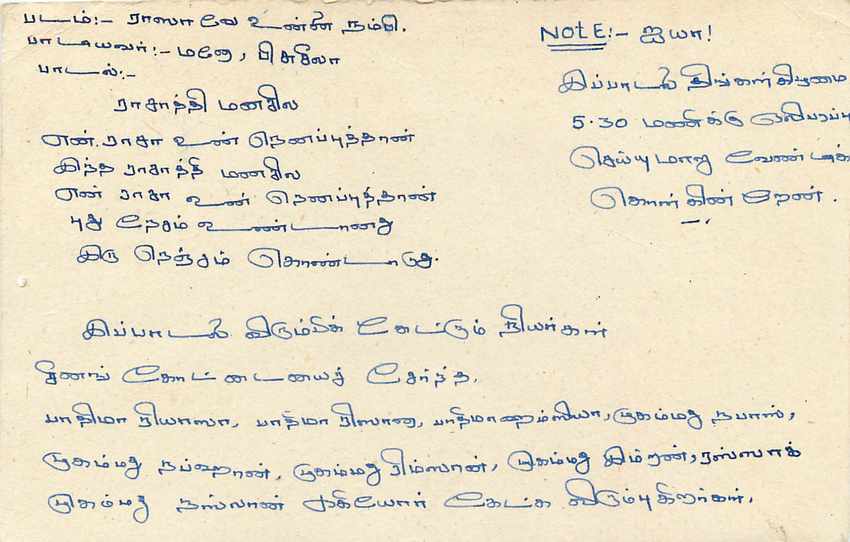 படம்:- ராஸாவே உன்னை நம்பி.
பாடியவர்:- மனோ, பி சுசீலா
பாடல்:-
ராசாத்தி மனசில
என் ராசா உன் நெனப்புத்தான்
இந்த ராசாத்தி மனசில
என் ராசா உன் நெனப்புத்தான்
புது நேசம் உண்டானது
இரு நெஞ்சம் கொண்டாடுது.
NOTE:- ஐயா!
இப்பாடலை திங்கள்கிழமை
5.30 மணிக்கு ஒலிபரப்பு
செய்யுமாறு வேண்டிக்
கொள்கின்றேன்.
இப்பாடலை விரும்பிக் கேட்கும் நேயர்கள்
கோட்டையைச் சேர்ந்த,
பாதிமா ரியாஸா, பாத்மா ரிஸானா, பாத்மா ஹம்ஸியா, முகம்மது நபாஸ்,
முகம்மது நப்ஹான், முகம்மது ரிம்ஸான், முகம்மது இம்றான், ரஸ்ஸாக்
முகம்மது நஸ்லான் ஆகியோர் கேட்க விரும்புகிறார்கள்.